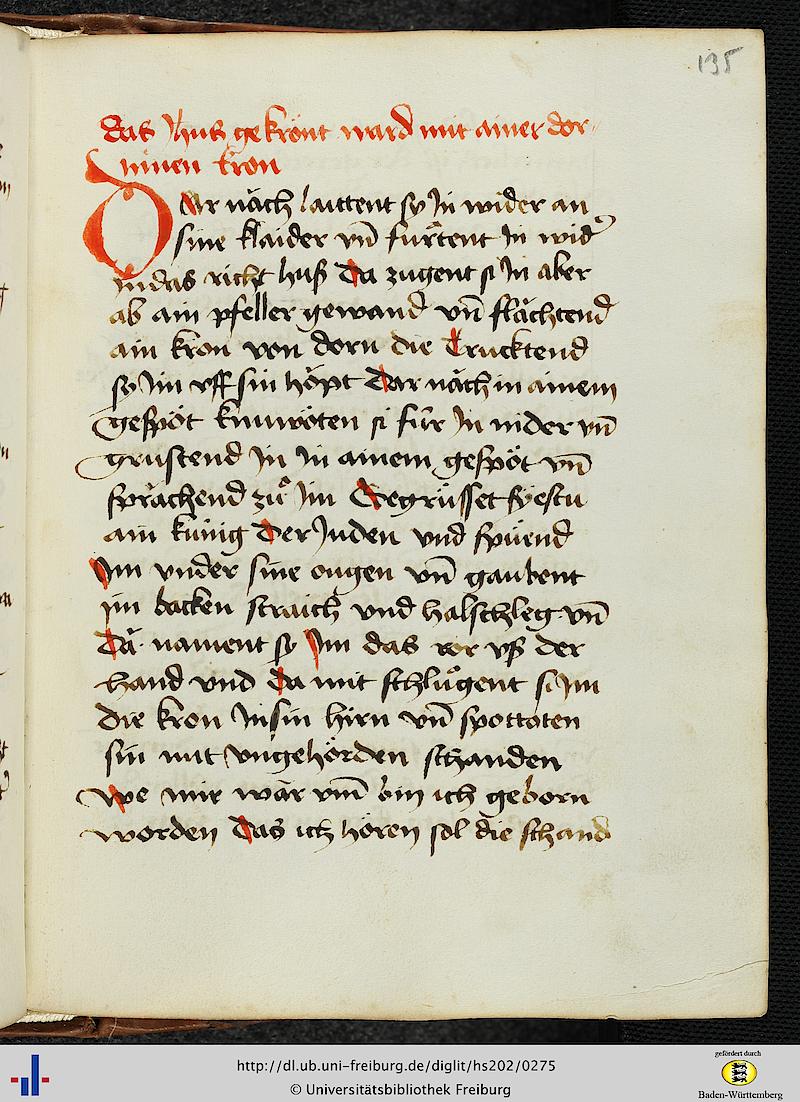 135
das Jhus gekrönt ward mit ainer dor-
ninen kron
Dar näch laittent sy In wider an
sine klaider vn̄ fürtent In wid'
Jn das richt huß Da zugent si In aber
ab ain pfeller gewand vn̄ flächtend
ain kron von dorn die Trucktend
sy Jm vff sin höpt Dar näch in ainem
gespöt knuwöten si für In nider vn̄
grüstend In in ainem gespöt vn̄
sprächend zů Jm Gegrüsset syestu
ain künig der Juden vnd spüend
Jm vnder sine ougen vn̄ gaubent
jm backen straich vnd halschleg vn̄
Dä nament sy Jm das ror vß der
hand vnd Da mit schlůgent si Jm
die kron In sin hirn vn̄ spottoten
sin mit vngehörden schanden
We mir war vm̄ bin ich geborn
worden Das ich hören sol die schand
http://dl.ub.uni-freiburg.de/diglit/hs202/0275
© Universitätsbibliothek Freiburg
gefördert durch
Baden-Württemberg